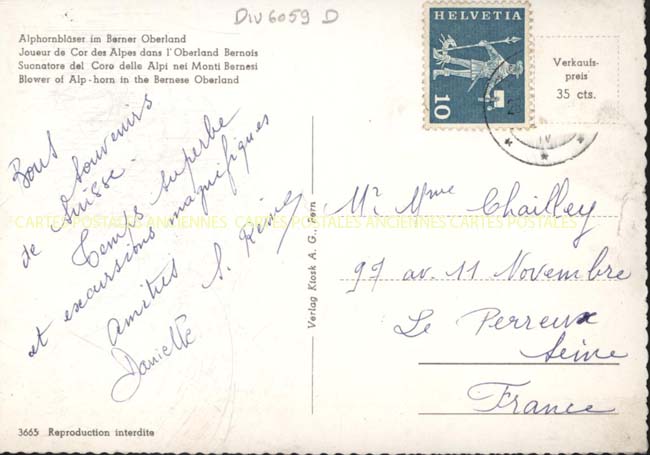 Div 6059 D
Alphornbläser im Berner Oberland
Joueur de Cor des Alpes dans l'Oberland Bernois
Suonatore del Coro delle Alpi nei Monti Bernesi
Blower of Alp-horn in the Bernese Oberland
HELVETIA
10
Verkaufs-
preis
35 cts.
Bons
Souvenirs
de Suisse.
Temps superbe
et excursions magnifiques
Amitiés
Danielle
S.
CARTES POSTALES ANCIENNES CARTES POSTALES ANCIENNES CARTES POSTALES
Verlag Kiosk A. G., Bern
Mr Mme Chailley
97 av. 11 Novembre
Le Perreux
Seine
France
3665 Reproduction interdite